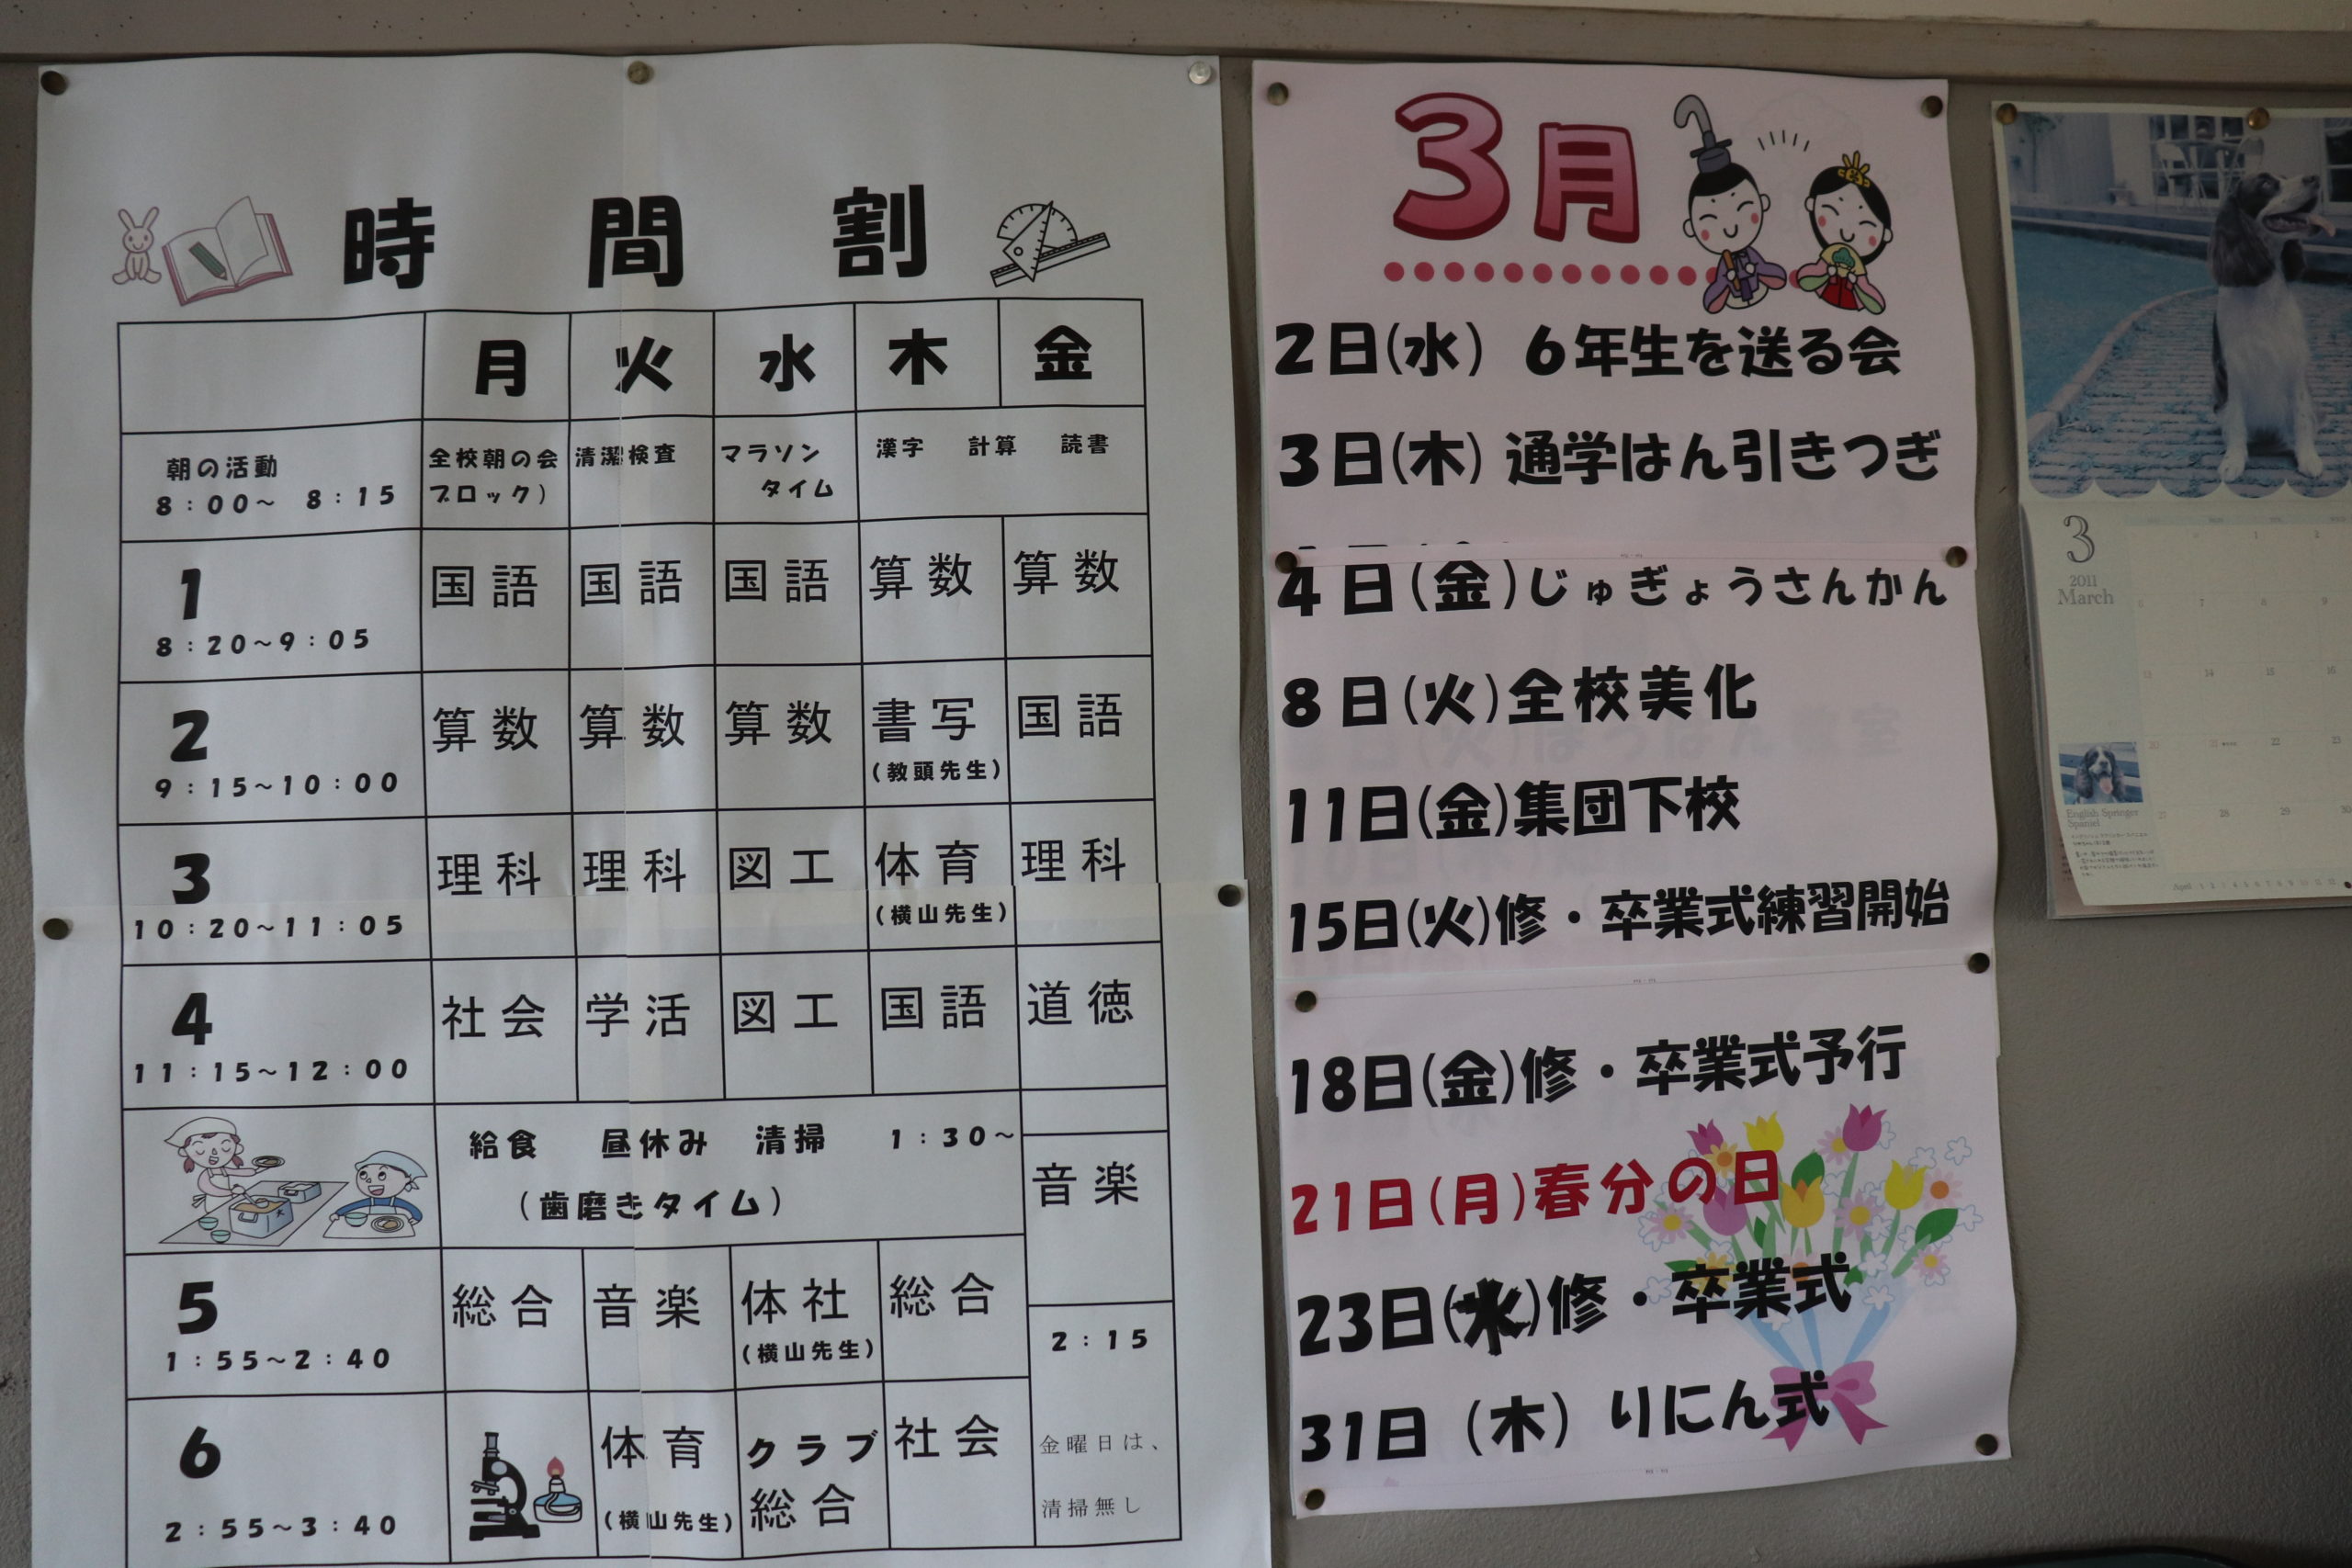 時間割
月 火 水 木 金
朝の活動
8:00～ 8:15
全校朝の会
ブロック)
清潔検査
マラソン
タイム
漢字 計算 読書
1
8:20～9:05
国語 国語 国語 算数 算数
2
9:15～10:00
算数 算数 算数 書写 国語
(教頭先生)
3
10:20～11:05
理科 理科 図工 体育 理科
(横山先生)
4
11:15～12:00
社会 学活 図工 国語 道徳
給食 昼休み 清掃 1:30～
(歯磨きタイム)
音楽
5
1:55～2:40
総合 音楽 体社 総合
(横山先生)
2:15
6
2:55～3:40
体育 クラブ 社会
(横山先生) 総合
金曜日は、
清掃無し
3月
2日(水) 6年生を送る会
3日(木) 通学はん引きつぎ
4日(金)じゅぎょうさんかん
8日(火)全校美化
11日(金)集団下校
15日(火)修・卒業式練習開始
18日(金)修・卒業式予行
21日(月)春分の日
23日(水)修・卒業式
31日(木) りにん式
3
2011
March
1 2
6 7 8 9
13 14 15 16
20 21 22 23
27 28 29 30
English Springer
Spaniel
April